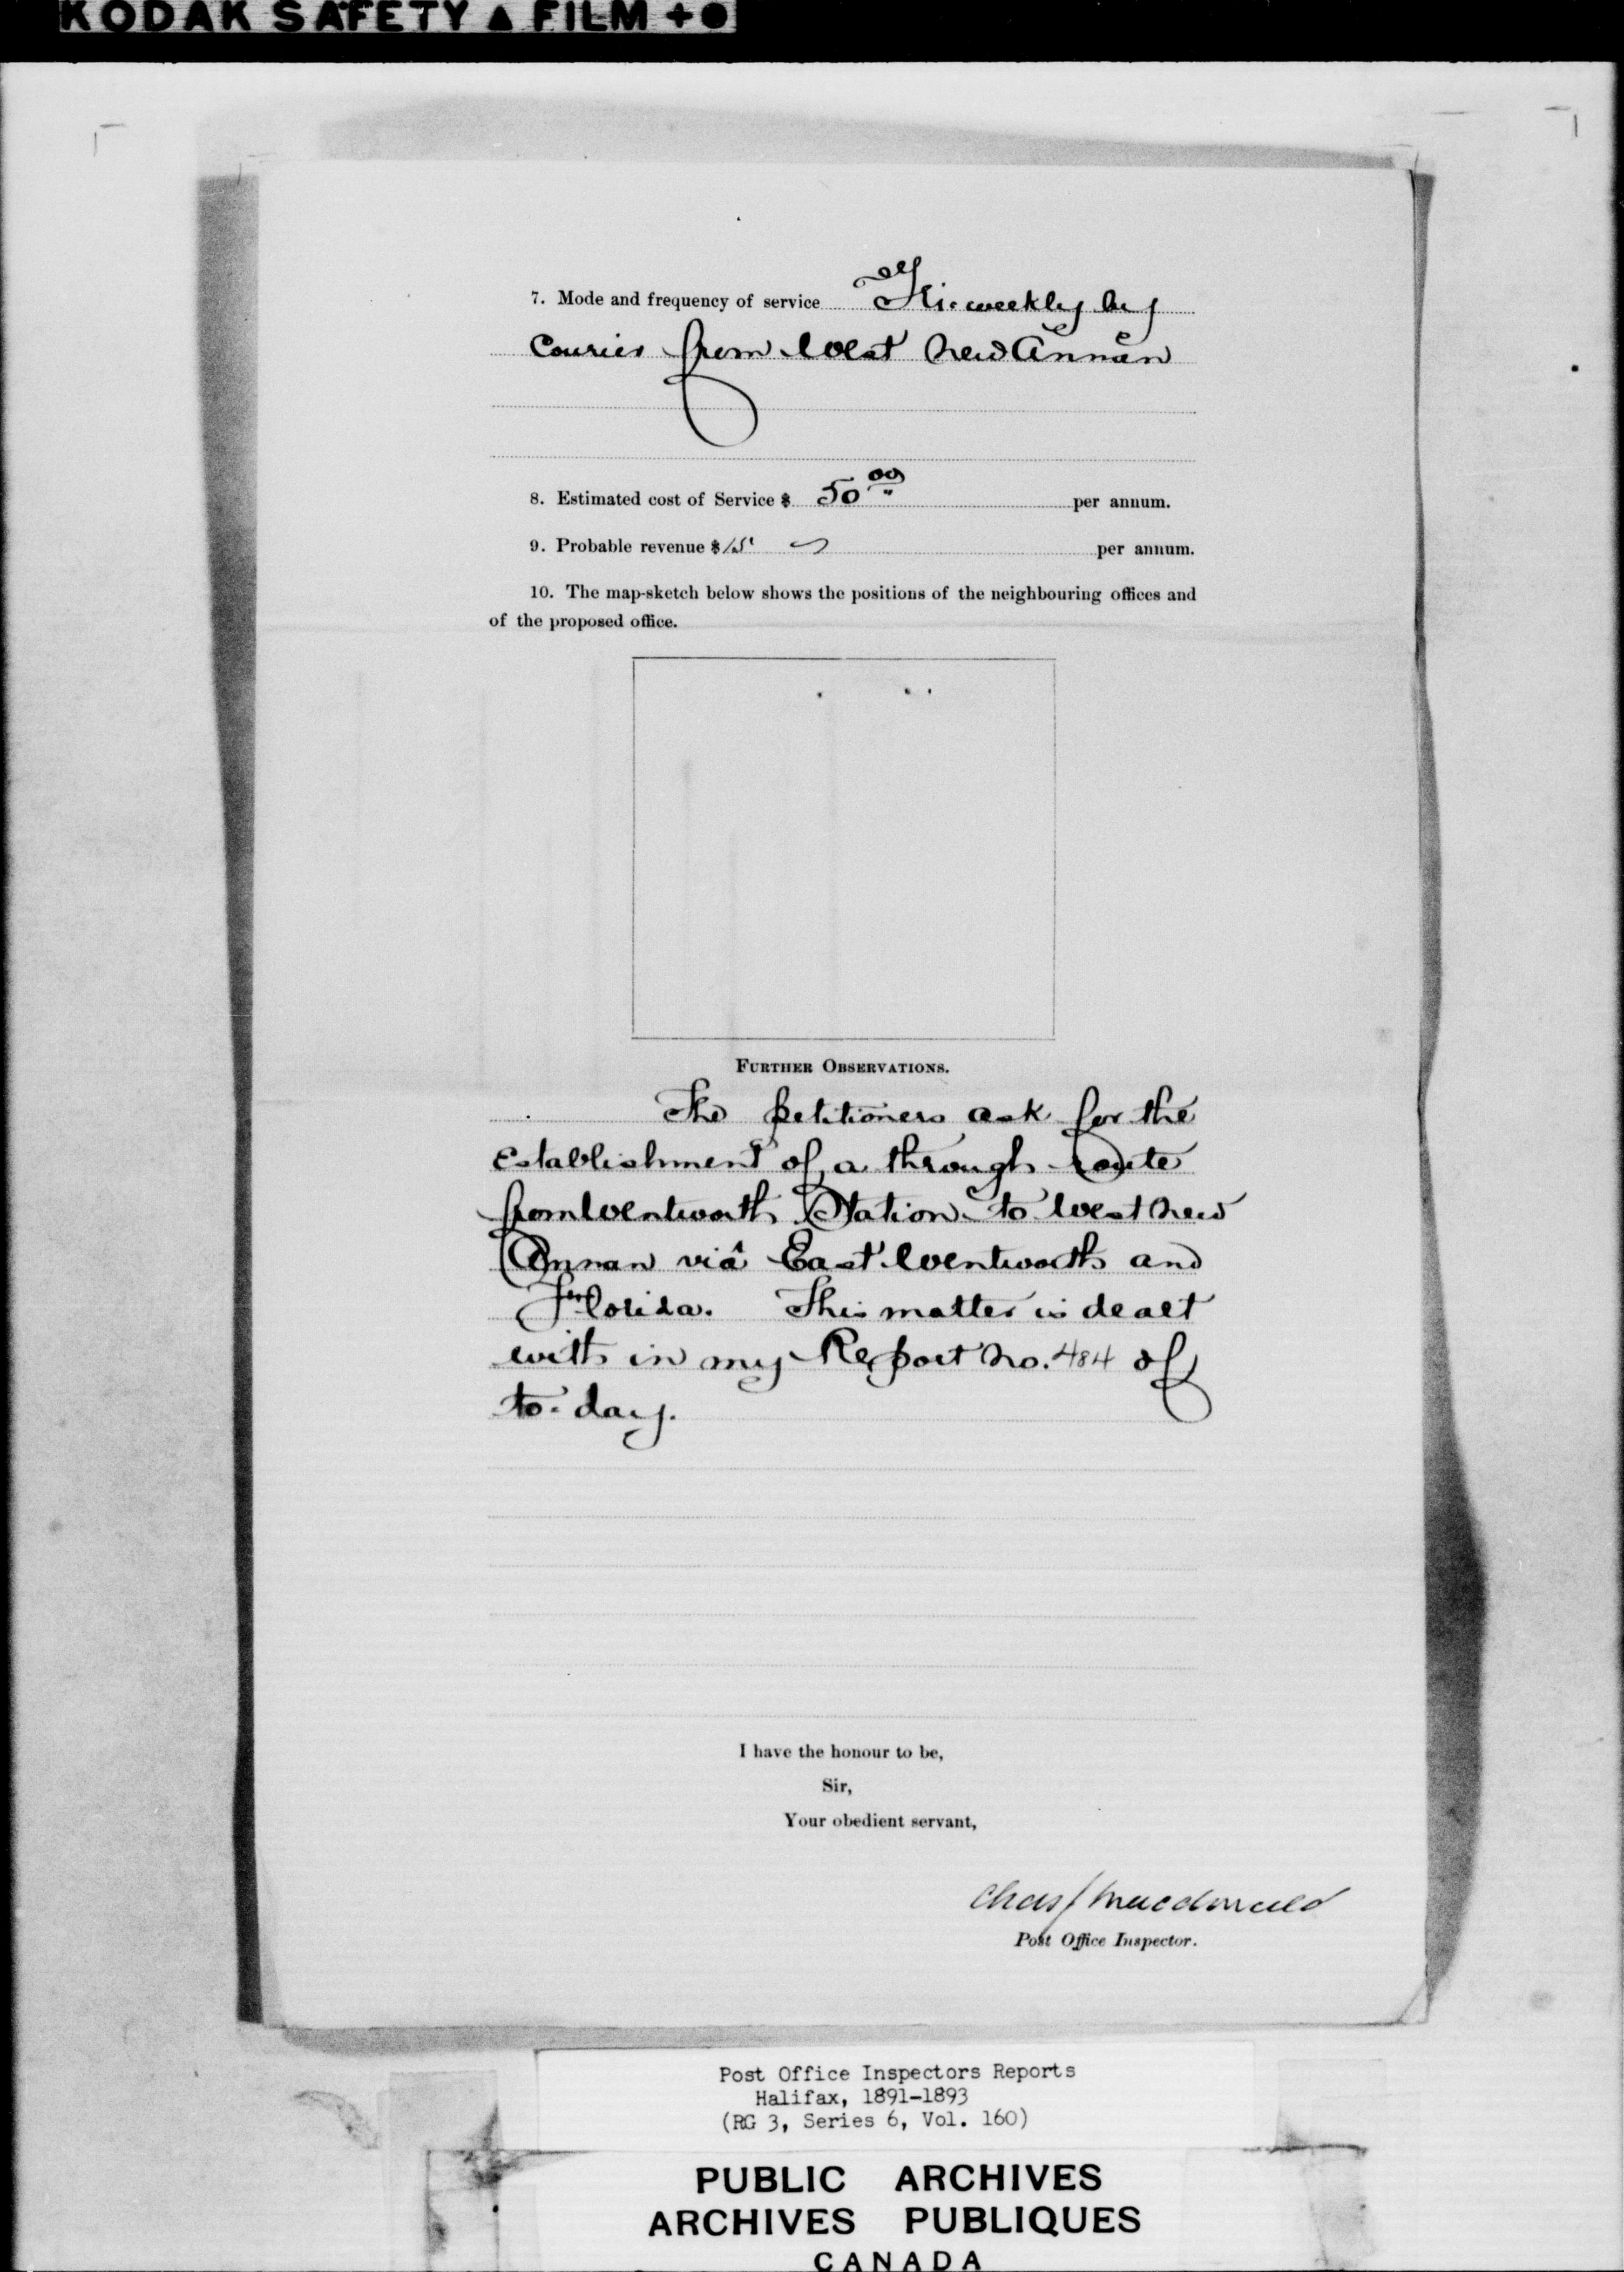 KODAK SAFETY ▲ FILM +●
7. Mode and frequency of service Tri-weekly by
Courier from West New Annan
8. Estimated cost of Service $ 50 00 per annum.
9. Probable revenue $ 15 per annum.
10. The map-sketch below shows the positions of the neighbouring offices and
of the proposed office.
FURTHER OBSERVATIONS.
The petitioners ask for the
establishment of a through route
from Wentworth Station to West New
Annan viâ East Wentworth and
Florida. This matter is dealt
with in my Report No. 484 of
to-day.
I have the honour to be,
Sir,
Your obedient servant,
Chas J Macdonald
Post Office Inspector.
Post Office Inspectors Reports
Halifax, 1891-1893
(RG 3, Series 6, Vol. 160)
PUBLIC ARCHIVES
ARCHIVES PUBLIQUES
CANADA